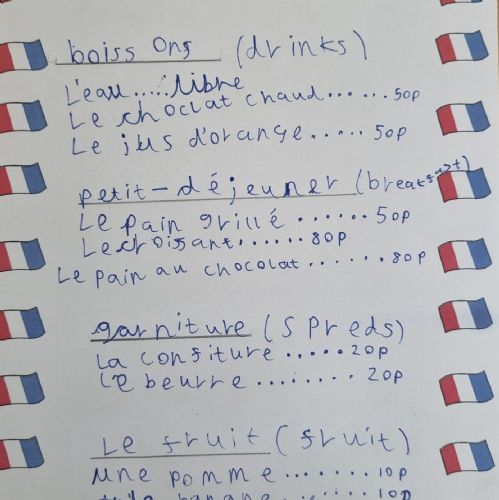 boissons (drinks)
L'eau.....libre
Le choclat chaud...... 50p
Le jus d'orange..... 50p
petit-déjeuner (breakfast)
Le pain grillé ...... 50p
Le croissant....... 80p
Le pain au chocolat ....... 80p
garniture (spreds)
La confiture ..... 20p
Le beurre ........ 20p
Le fruit (fruit)
une pomme ....... 10p
banane ...... 10p